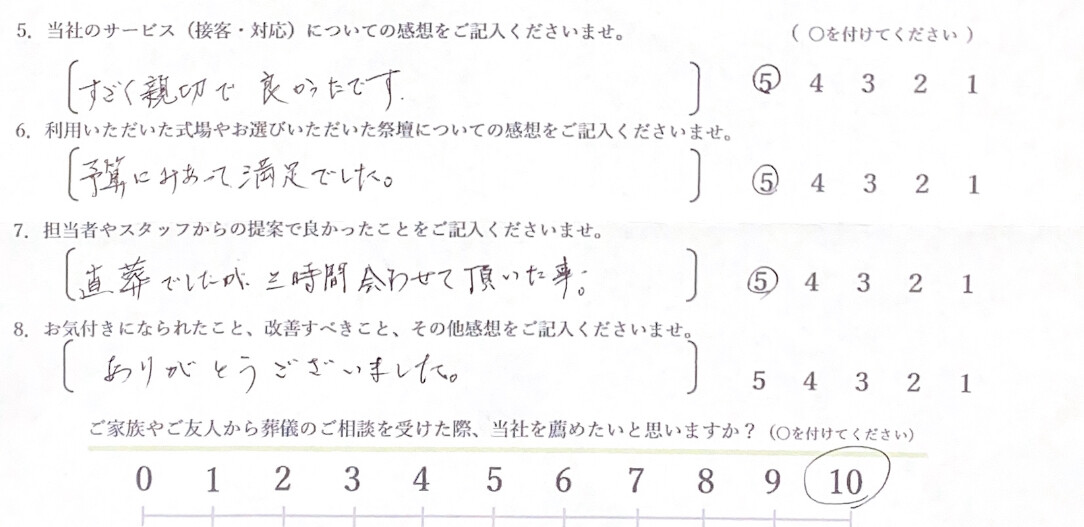 5. 当社のサービス（接客・対応）についての感想をご記入くださいませ。 （ ○を付けてください ）
すごく親切で 良かったです. 5 4 3 2 1
6. 利用いただいた式場やお選びいただいた祭壇についての感想をご記入くださいませ。
予算にみあって満足でした。 5 4 3 2 1
7. 担当者やスタッフからの提案で良かったことをご記入くださいませ。
直葬でしたが、 時間 合わせて頂いた事。 5 4 3 2 1
8. お気付きになられたこと、改善すべきこと、その他感想をご記入くださいませ。
ありがとうございました。 5 4 3 2 1
ご家族やご友人から葬儀のご相談を受けた際、当社を薦めたいと思いますか？（○を付けてください）
0 1 2 3 4 5 6 7 8 9 10